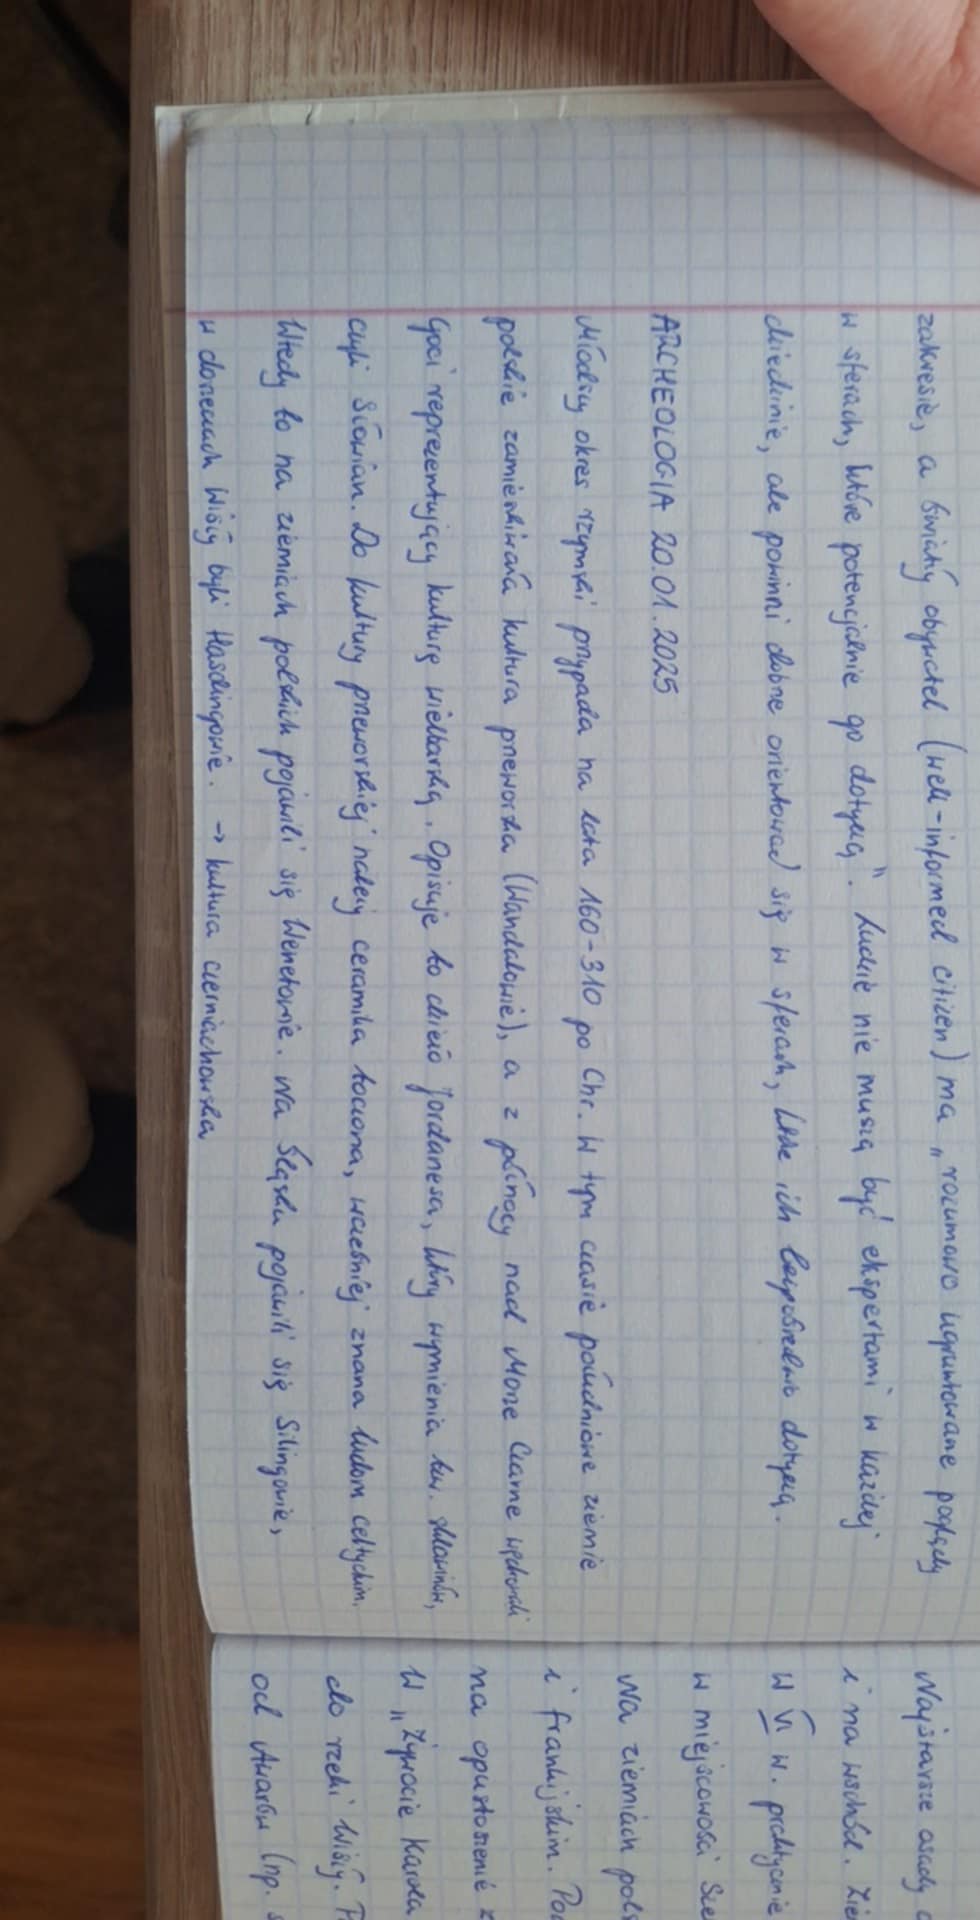 zakresie, a światły obywatel (well-informed citizen) ma „rozumowo ugruntowane poglądy
w sferach, które potencjalnie go dotyczą". Ludzie nie muszą być ekspertami w każdej
dziedzinie, ale powinni dobrze orientować się w sferach, które ich bezpośrednio dotyczą.
ARCHEOLOGIA 20.01.2025
Młodszy okres rzymski przypada na lata 160-310 po Chr. W tym czasie południowe ziemie
polskie zamieszkiwała kultura przeworska (Wandalowie), a z północy nad Morze Czarne wędrowali
Goci reprezentujący kulturę wielbarską. Opisuje to dzieło Jordanesa, który wymienia tzw. Sklawinów,
czyli Słowian. Do kultury przeworskiej należy ceramika toczona, wcześniej znana ludom celtyckim.
Wtedy to na ziemiach polskich pojawili się Wenetowie. Na Śląsku pojawili się Silingowie,
w dorzeczach Wisły byli Hasdingowie. → kultura czerniachowska
Najstarsze osady
i na wschód.
w VI w. praktycznie
w miejscowości
Na ziemiach
i frankijskim.
na opustoszenie z
W „Żywocie Karola
do rzeki Wisły.
od Awarów (np.